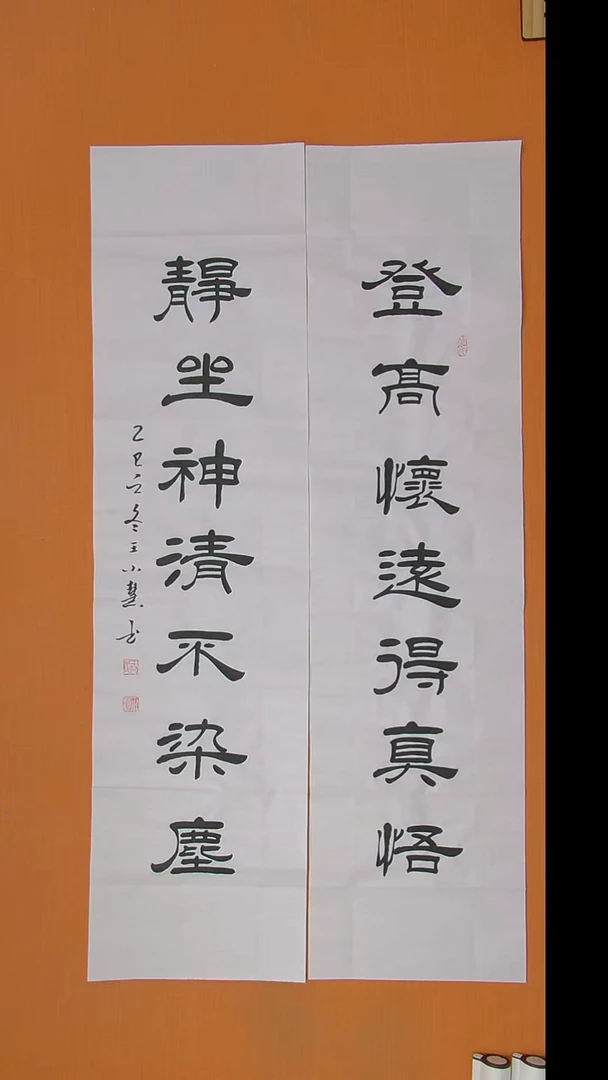 登高懷遠得真悟
靜坐神清不染塵
乙巳之冬王小慧书